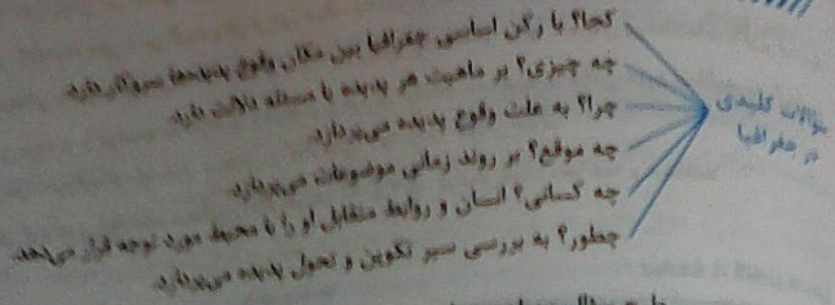 سؤالات کلیدی
در جغرافیا
کجا؟ با رکن اساسی جغرافیا یعنی مکان وقوع پدیده‌ها سروکار دارد.
چه چیزی؟ بر ماهیت هر پدیده یا مسئله دلالت دارد.
چرا؟ به علت وقوع پدیده می‌پردازد.
چه موقع؟ بر روند زمانی موضوعات می‌پردازد.
چه کسانی؟ انسان و روابط متقابل او را با محیط مورد توجه قرار می‌دهد.
چطور؟ به بررسی سیر تکوین و تحول پدیده می‌پردازد.